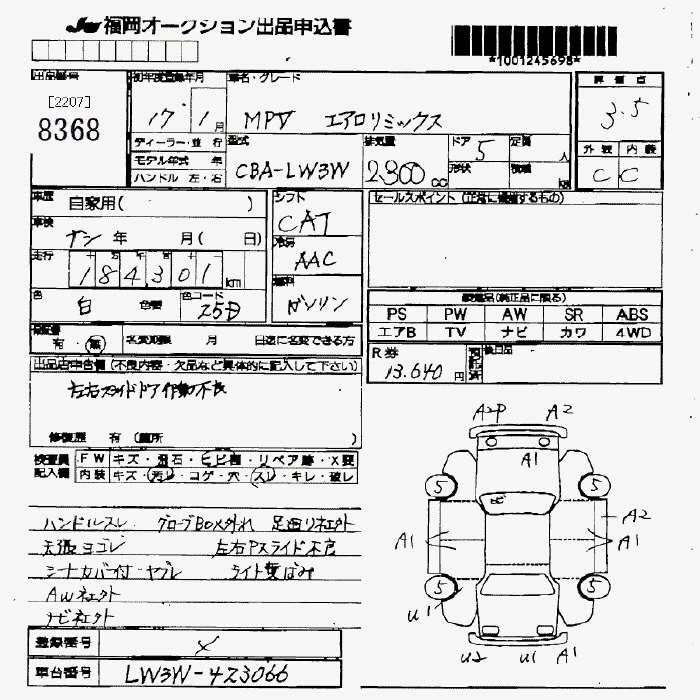 福岡オークション出品申込書
*1001245698*
出品番号
[2207]
8368
初年度登録年月
17 1月
車名・グレード
MPV エアロリミックス
評価点
3.5
外装 内装
C C
ディーラー・並行
モデル年式 年
ハンドル 左・右
型式
CBA-LW3W
排気量
2300 CC
ドア
5
形状
定員
人
積載
kg
車歴
自家用( )
車検
ナシ 年 月( 日)
走行
十 万 千 百 十 一
184301 km
色
白 色替
色コード
25D
シフト
CAT
冷房
AAC
燃料
ガソリン
セールスポイント (正常に機能するもの)
装備品(純正品に限る)
PS PW AW SR ABS
エアB TV ナビ カワ 4WD
R券
13.640円
預託済
後日品
保証書
有・無
名変期限 月 日迄に名変できる方
出品店申告欄 (不良内容・欠品など具体的に記入して下さい)
左右スライドドア作動不良
修復歴 有 (箇所 )
検査員記入欄
FW キズ・飛石・ヒビ割・リペア跡・X要
内装 キズ・汚レ・コゲ・穴・スレ・キレ・破レ
ハンドルスレ グローブBOX外れ 足廻リネエクト
天張ヨゴレ 左右Pスライド不良
シートカバー付・ヤブレ ライト黄ばみ
AWネエクト
ナビネエクト
登録番号
メ
車台番号
LW3W-423066
A2P A2
A1
5 5
A2
A1 A1
5 5
U1
U2 U1 A1